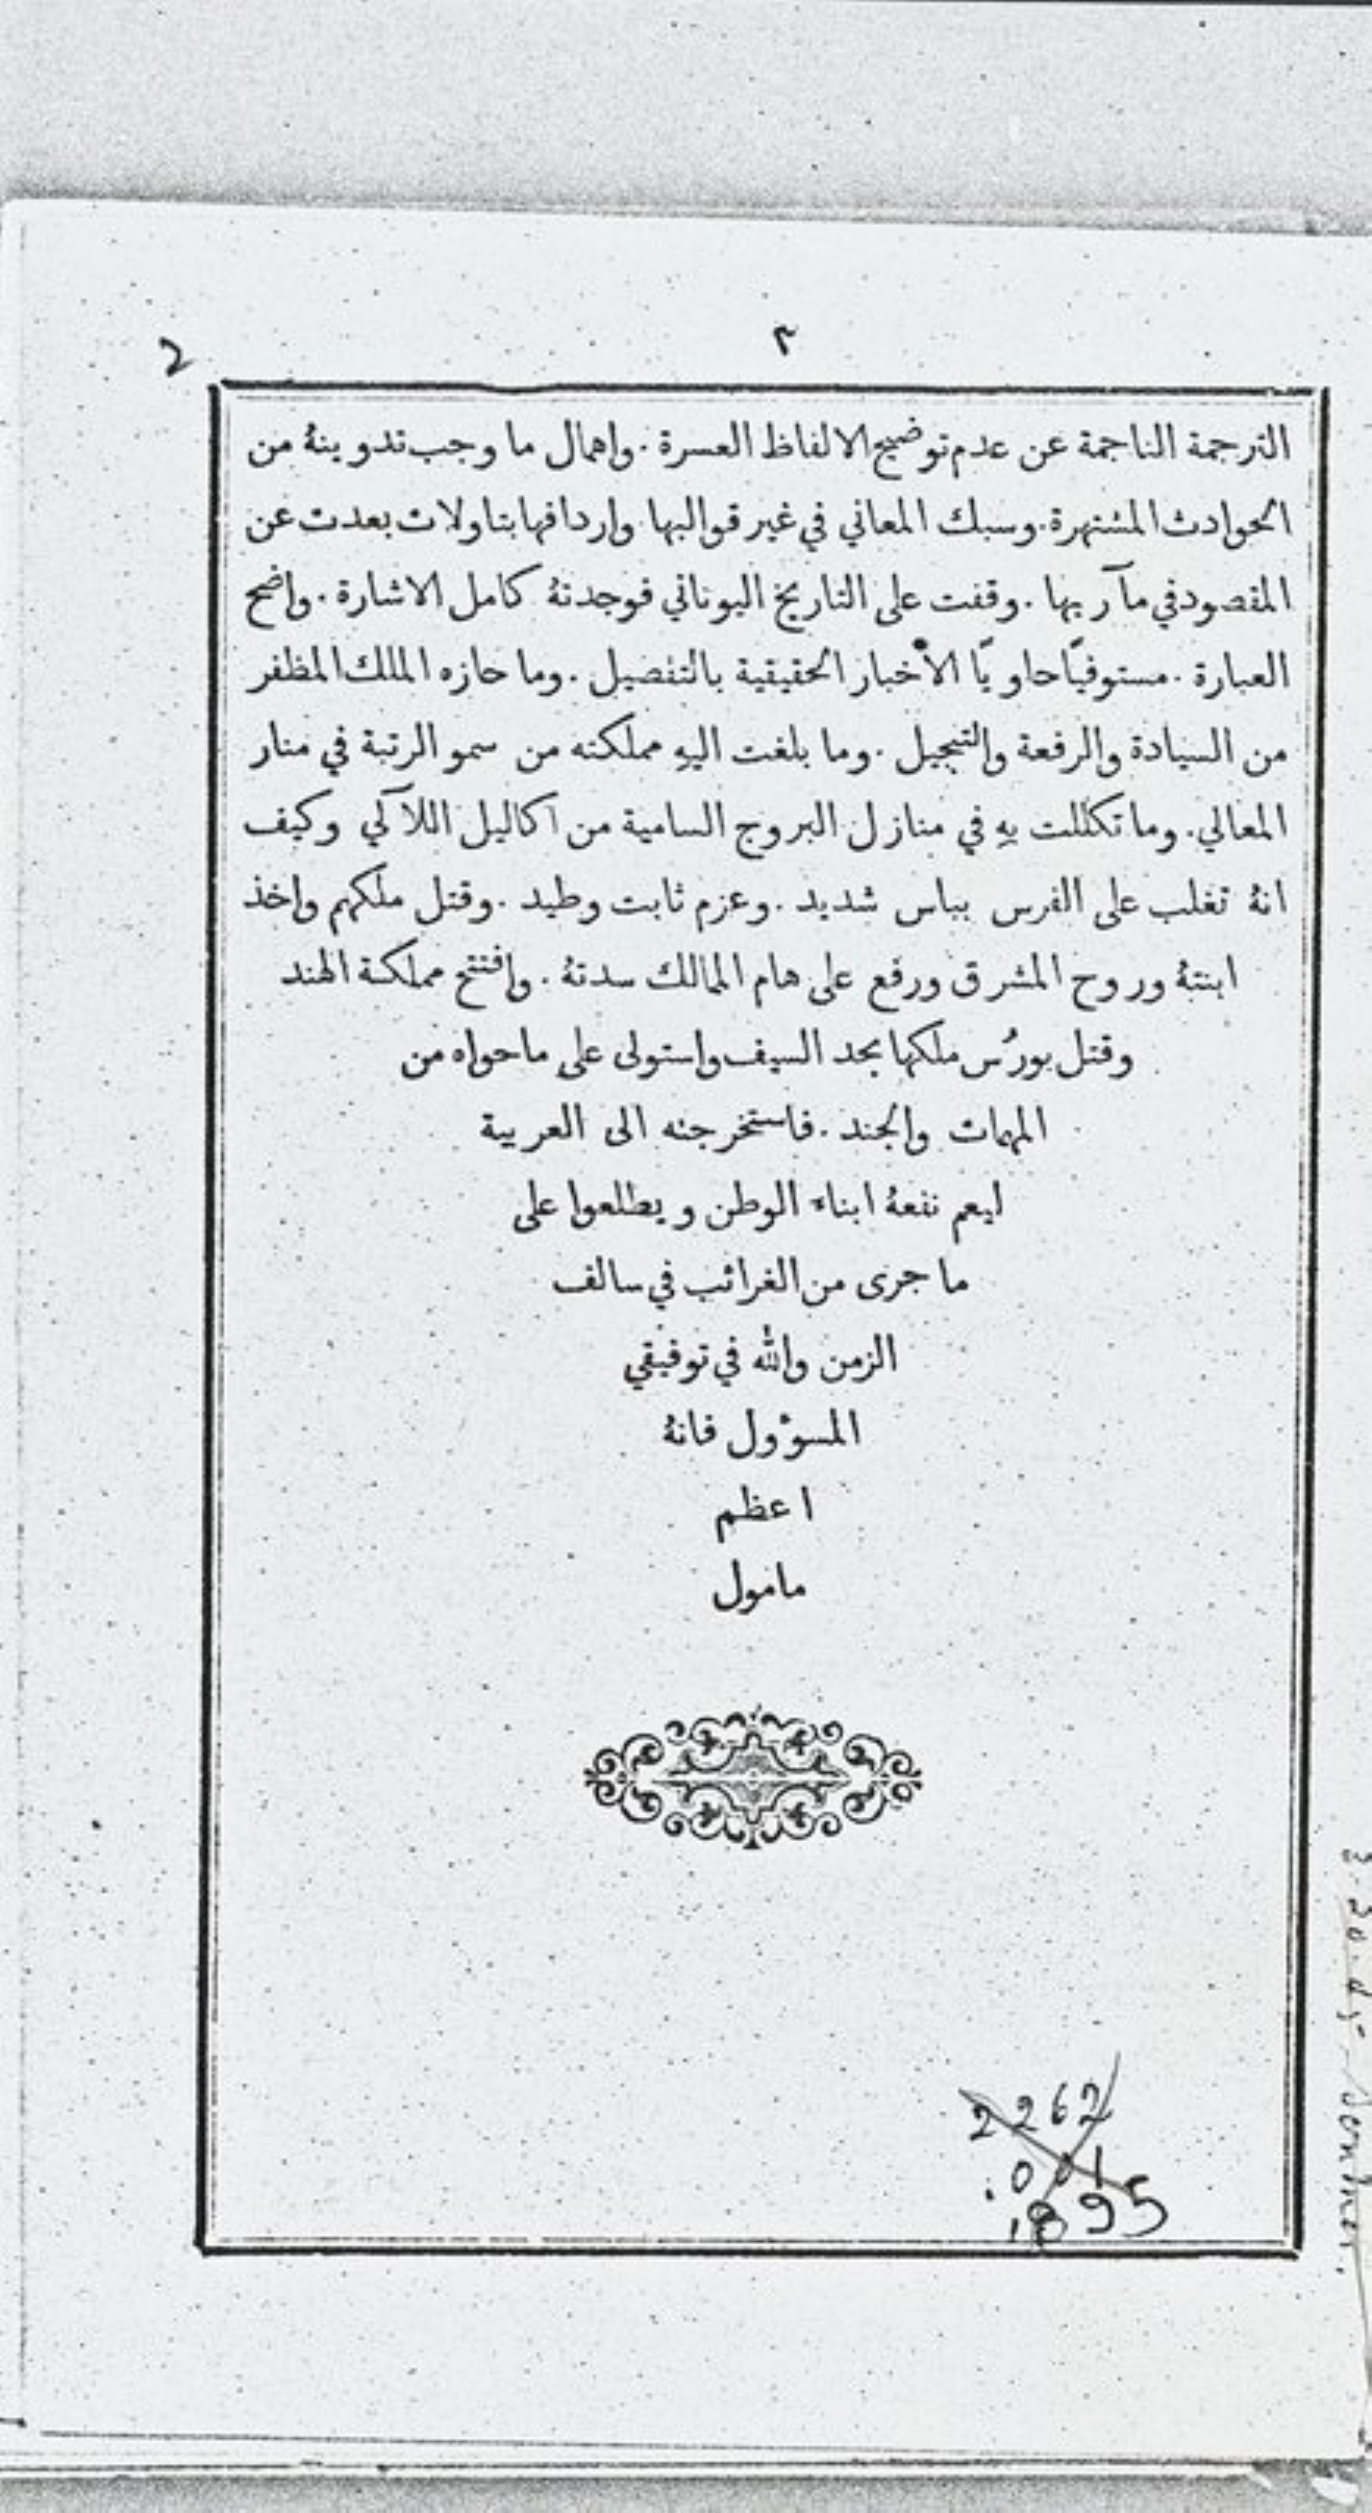 ٢
2
الترجمة الناجمة عن عدم توضيح الالفاظ العسرة . واهمال ما وجب تدوينهُ من
الحوادث المشتهرة . وسبك المعاني في غير قوالبها واردافها بتاولات بعدت عن
المقصود في مآربها . وقفت على التاريخ اليوناني فوجدتهُ كامل الاشارة . واضح
العبارة . مستوفيًا حاويًا الأخبار الحقيقية بالتفصيل . وما حازه الملك المظفر
من السيادة والرفعة والتبجيل . وما بلغت اليهِ مملكته من سمو الرتبة في منار
المعالي . وما تكللت بهِ في منازل البروج السامية من اكاليل اللآلي وكيف
انهُ تغلب على الفرس بباس شديد . وعزم ثابت وطيد . وقتل ملكهم واخذ
ابنتهُ وروح المشرق ورفع على هام الممالك سدتهُ . وافتتح مملكة الهند
وقتل بورُس ملكها بحد السيف واستولى على ما حواه من
المهمات والجند . فاستخرجته الى العربية
ليعم نفعهُ ابناء الوطن ويطلعوا على
ما جرى من الغرائب في سالف
الزمن والله في توفيقي
المسوٴول فانهُ
اعظم
مامول
2262
.001
.895